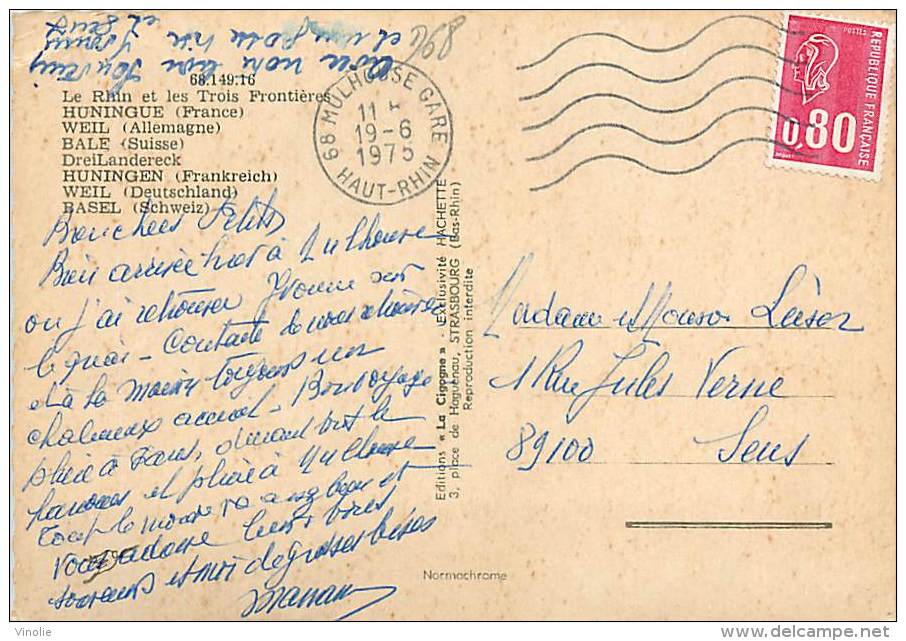 68.149.16
Le Rhin et les Trois Frontières
HUNINGUE (France)
WEIL (Allemagne)
BALE (Suisse)
DreiLandereck
HUNINGEN (Frankreich)
WEIL (Deutschland)
BASEL (Schweiz)
Bien arrivée hier à Mulhouse
où j'ai retrouvé Yvonne sur
le quai - Contente de nous retrouver
et à la maison toujours un
chaleureux accueil - Bon voyage
pluie à Paris, durant tout le
et pluie à Mulhouse
Tout le monde va assez bien et
vous adresse leurs bons
souvenirs et moi de grosses bises
Maman
68 MULHOUSE GARE
11 H
19-6
1975
HAUT-RHIN
REPUBLIQUE FRANÇAISE
0,80
Editions « La Cigogne » - Exclusivité HACHETTE
3, place de Haguenau, STRASBOURG (Bas-Rhin)
Reproduction interdite
Madame et Monsieur
1 Rue Jules Verne
89100 Sens
Normachrome
Vinolie
delcampe.net